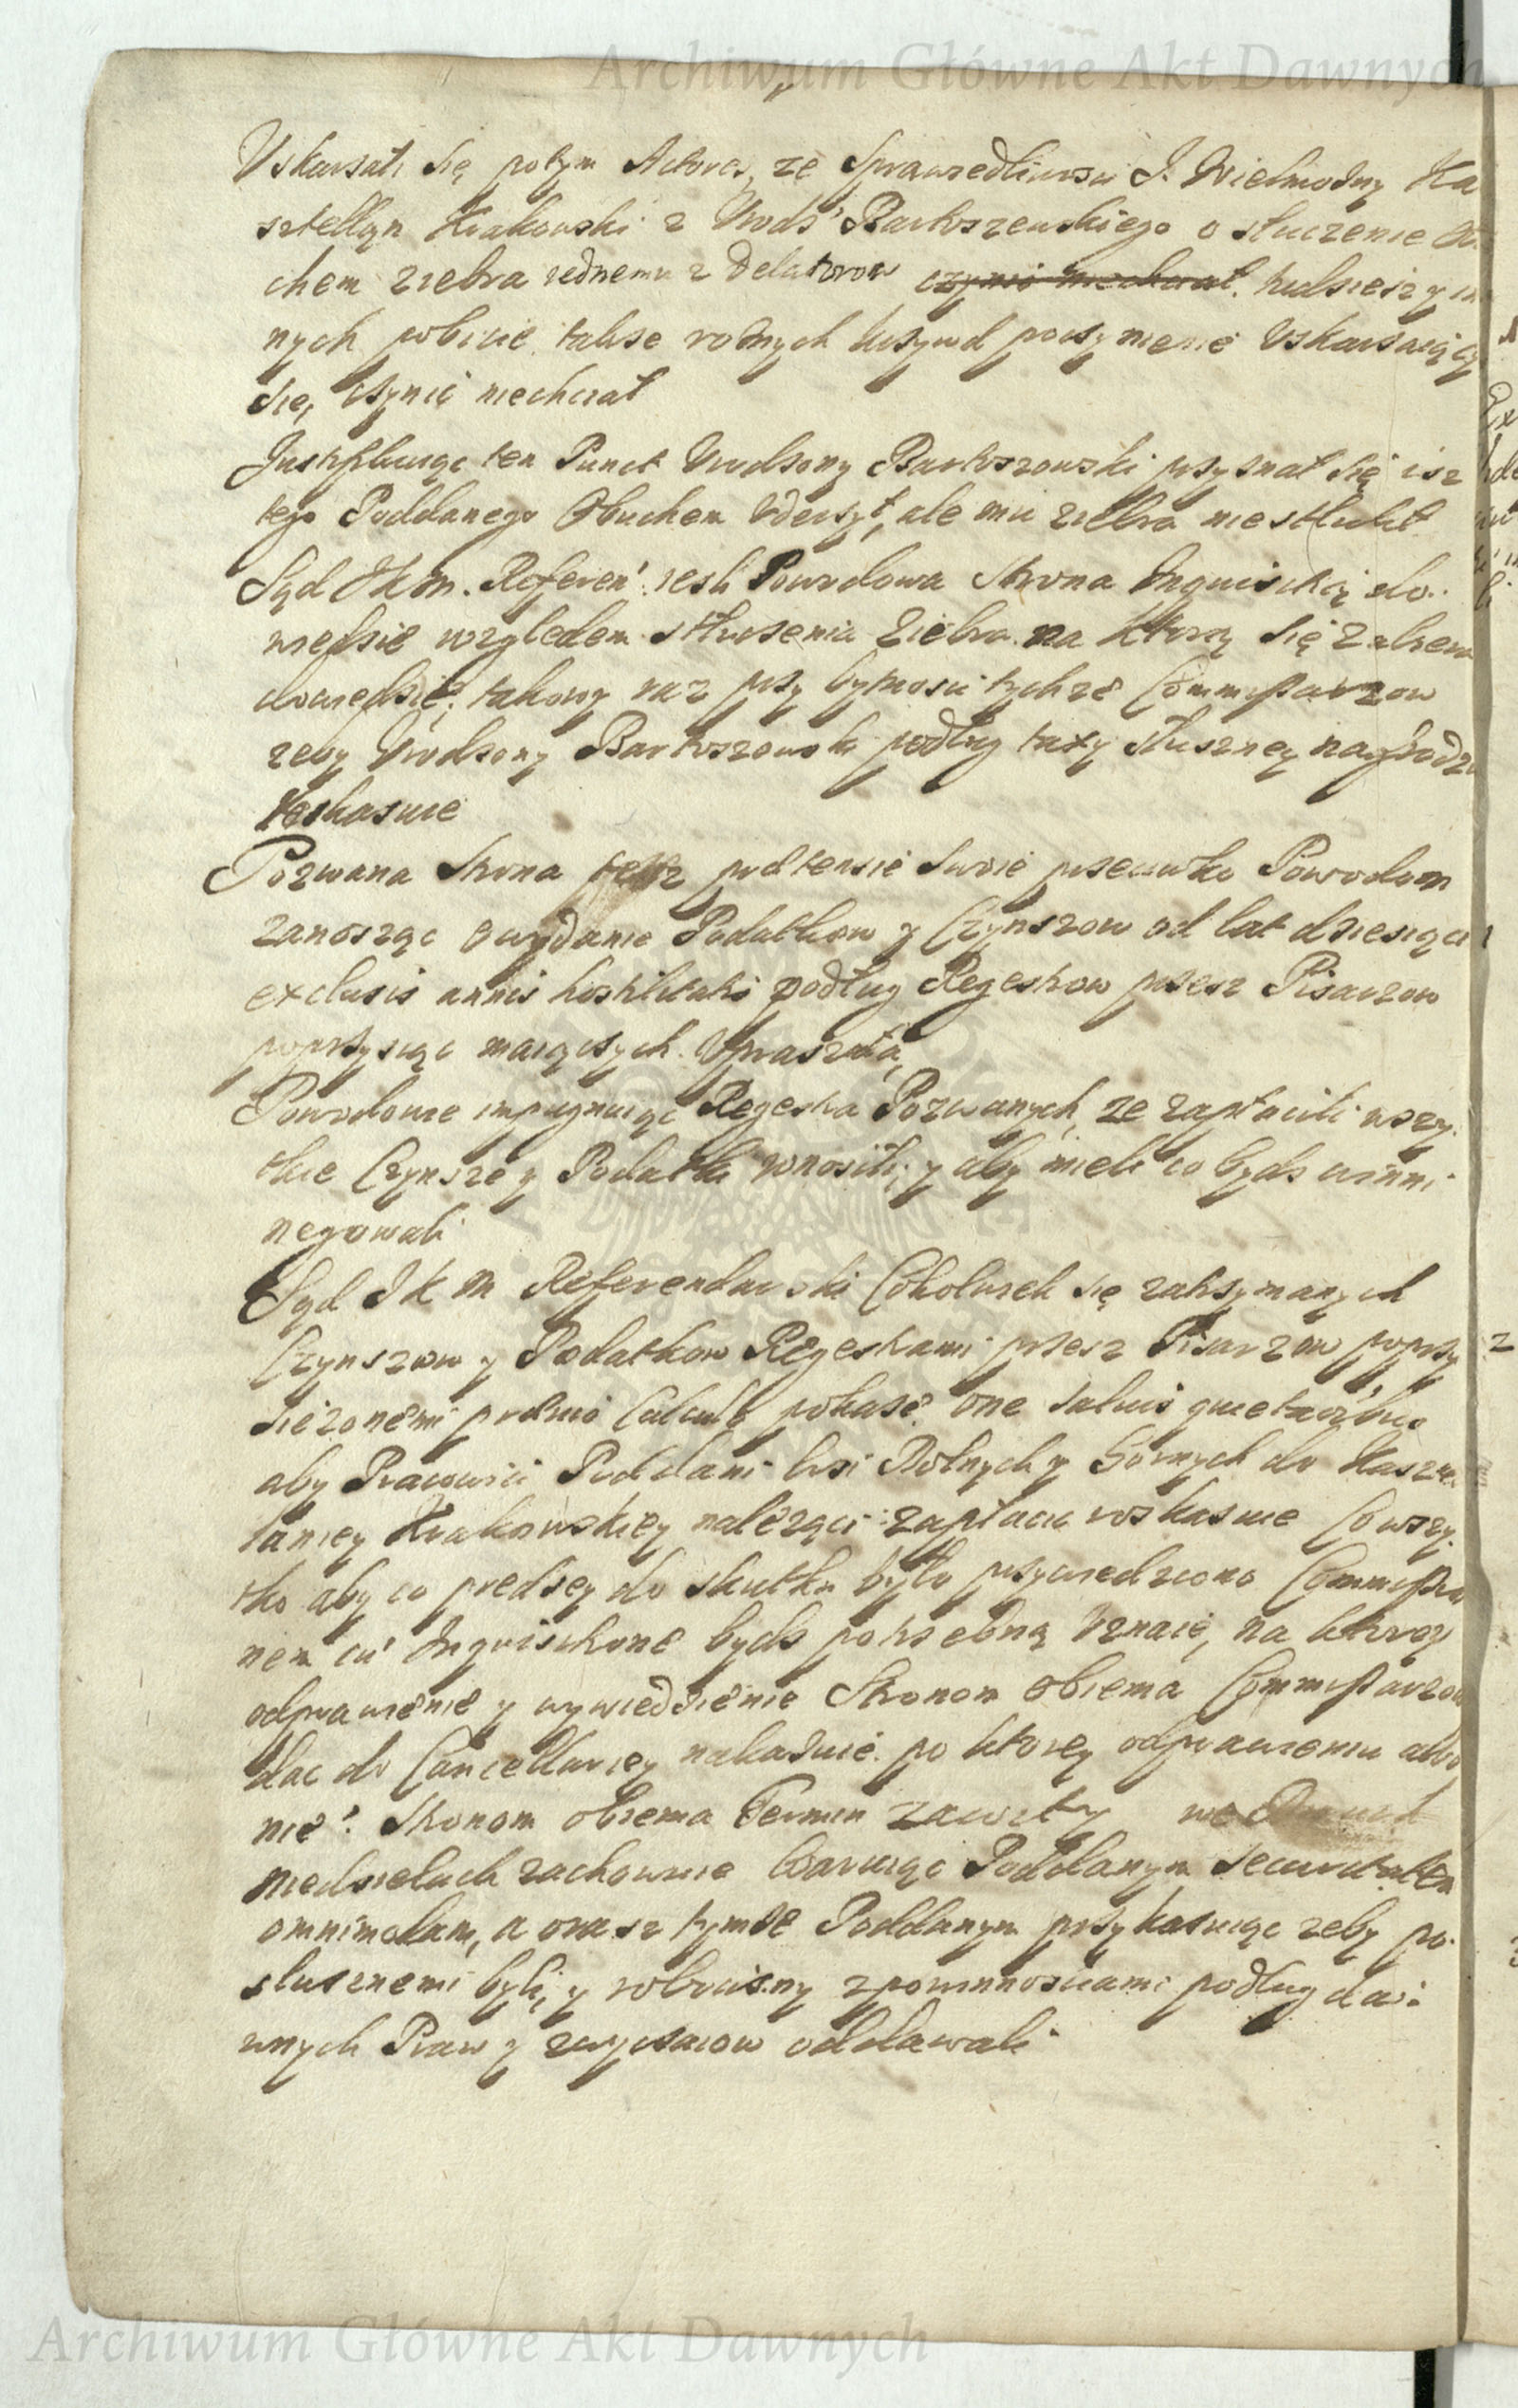 Archiwum Główne Akt Dawnych
Uskarzali się potym Actores, ze Sprawiedliwosci J. Wielmozny Ka
sztellan Krakowski z Urodz Bartoszewskiego o stłuczenie Obu
chem ziebra iednemu z Delatorow czynic niechciał. tudziesz y in
nych pobicie, takze roznych krzywd poczynienie Uskarzaiącym
się, czynic niechciał
Justifikuiąc ten Punct Urodzony Bartoszewski przyznał się isz
tego Poddanego Obuchem Uderzył, ale mu ziebra nie stłukł
Sąd JKM. Referen: iesli Powodowa Strona Inquisitią do
wiedzie względem stłuczenia Ziebra na ktorą się zabiera
dowiedzie, takowy raz przy bytnosci tychze Commissarzow
zeby Urodzony Bartoszewski podług taxy słuszney nagrodził
Roskazuie
Pozwana Strona tesz prætensie swoie przeciwko Powodom
zanosząc o wydanie Podatkow y Czynszow od lat dziesiąci
exclusis annis hostilitatis podług Regestrow przesz Pisarzow
poprzysiąc maiących. Upraszała,
Powodowie impugnuiąc Regestra Pozwanych, ze zapłacili wszy
tkie Czynsze y Podatki wnosili, y aby mieli co bydz winni
negowali
Sąd JKM Referendarski Cokolwiek się zatrzymanych
Czynszow y Podatkow Regestrami przesz Pisarzow poprzy
siezonemi prævio Calculo pokaze one salvis quietaõbus
aby Pracowici Poddani Wsi Rolnych y Gornych do Kaszte
laniey Krakowskiey nalezący zapłacili roskazuie Co wszy
tko aby co prędzey do skutku było przywiedziono Commissio
nem cu Inquisitione bydz potrzebną Uznaie, na ktorey
odprawienie y wywiedzienie Stronom obiema Commissarzow
dac do Cancellariey nakazuie. po ktorey odprawieniu albo
nie: Stronom obiema Termin zawity we
niedzielach zachowuie Waruiąc Poddanym securitatem
omnimodam, a orasz tymze Poddanym przykazuiąc zeby po
słusznemi byli, y robocizny z powinnosciami podług da
wnych Praw y zwyczaiow oddawali
2
Archiwum Główne Akt Dawnych